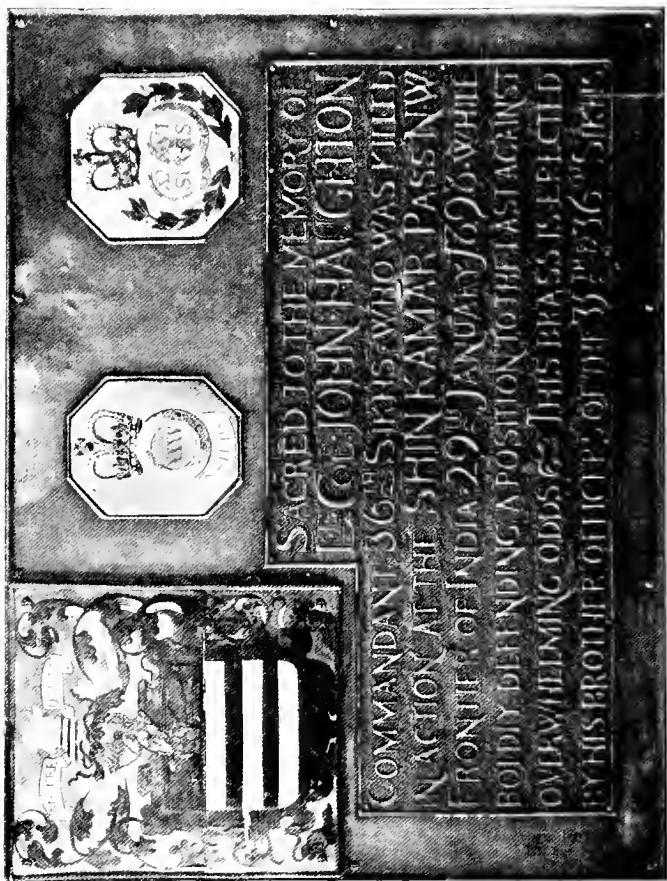 SACRED TO THE MEMORY OF
JOHN HAUGHTON
COMMANDANT 36TH SIKHS, WHO WAS KILLED
IN ACTION AT THE SHIN KAMAR PASS N.W.
FRONTIER OF INDIA 29TH JANUARY 1898 WHILE
BOLDLY DEFENDING A POSITION TO THE LAST AGAINST
OVERWHELMING ODDS THIS BRASS IS ERECTED
BY HIS BROTHER OFFICERS OF THE 35TH & 36TH SIKHS
XXXV
SIKHS